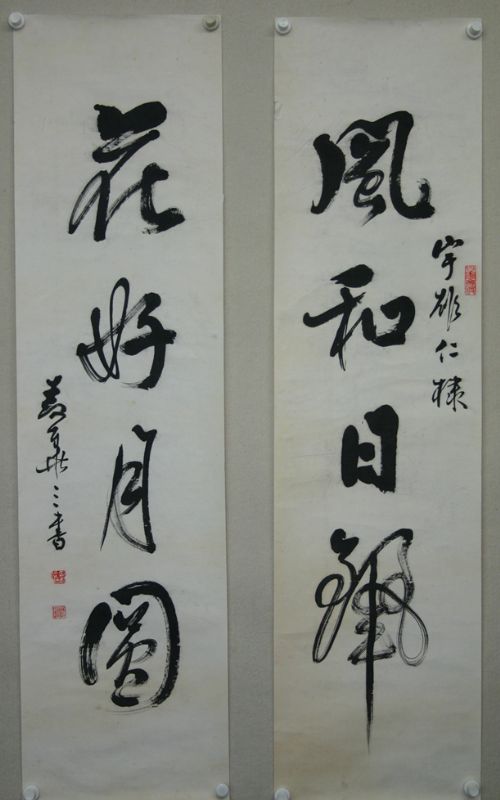 風和日麗
宇雄仁棣
花好月圓
書